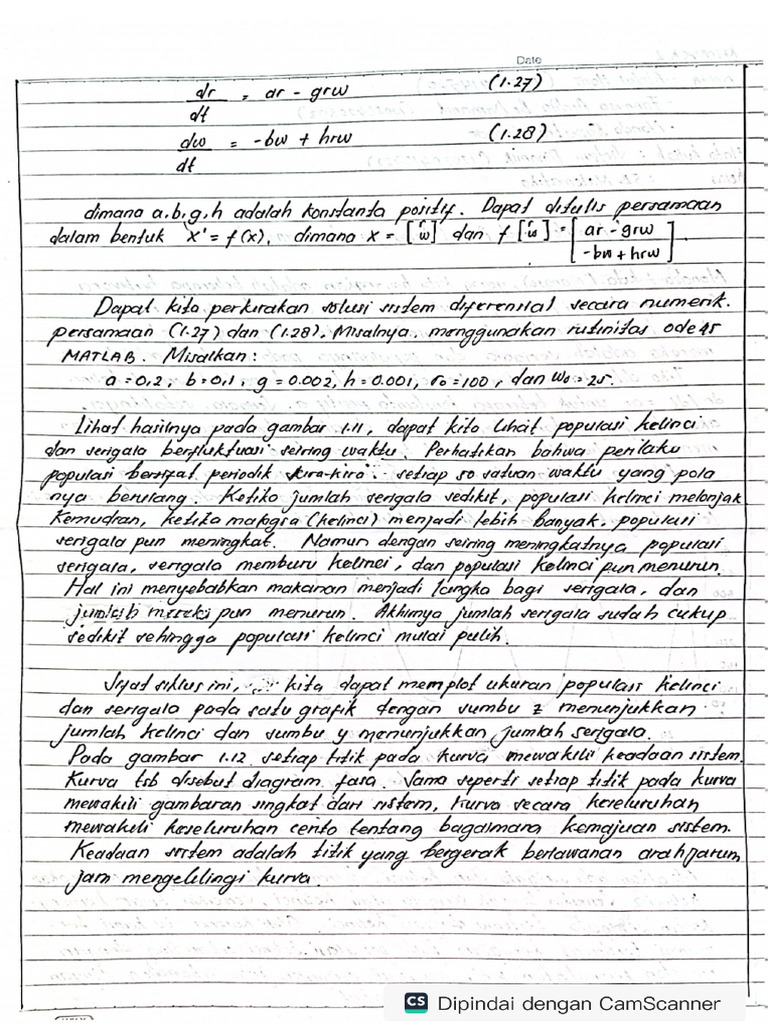 Date
dr/dt = ar - grw (1.27)
dw/dt = -bw + hrw (1.28)
dimana a,b,g,h adalah konstanta positif. Dapat ditulis persamaan
dalam bentuk x' = f(x), dimana x = [r w] dan f [r w] = [ar - grw
-bw + hrw]
Dapat kita perkirakan solusi sistem diferensial secara numerik.
persamaan (1.27) dan (1.28). Misalnya, menggunakan rutinitas ode 45
MATLAB. Misalkan:
a = 0,2 ; b = 0,1 , g = 0.002, h = 0.001, r0 = 100 , dan w0 = 25.
Lihat hasilnya pada gambar 1.11, dapat kita lihat populasi kelinci
dan serigala berfluktuasi seiring waktu. Perhatikan bahwa perilaku
populasi bersifat periodik kira-kira setiap 50 satuan waktu yang pola
nya berulang. Ketika jumlah serigala sedikit, populasi kelinci melonjak
Kemudian, ketika makanga (kelinci) menjadi lebih banyak, populasi
serigala pun meningkat. Namun dengan seiring meningkatnya populasi
serigala, serigala memburu kelinci, dan populasi kelinci pun menurun.
Hal ini menyebabkan makanan menjadi langka bagi serigala, dan
jumlah mereka pun menurun. Akhirnya jumlah serigala sudah cukup
sedikit sehingga populasi kelinci mulai pulih.
Sifat siklus ini, kita dapat memplot ukuran populasi kelinci
dan serigala pada satu grafik dengan sumbu z menunjukkan
jumlah kelinci dan sumbu y menunjukkan jumlah serigala.
Pada gambar 1.12 setiap titik pada kurva mewakili keadaan sistem.
Kurva tsb disebut diagram fasa. Sama seperti setiap titik pada kurva
mewakili gambaran singkat dari sistem, kurva secara keseluruhan
mewakili keseluruhan cerita tentang bagaimana kemajuan sistem.
Keadaan sistem adalah titik yang bergerak berlawanan arah jarum
jam mengelilingi kurva.
CS Dipindai dengan CamScanner